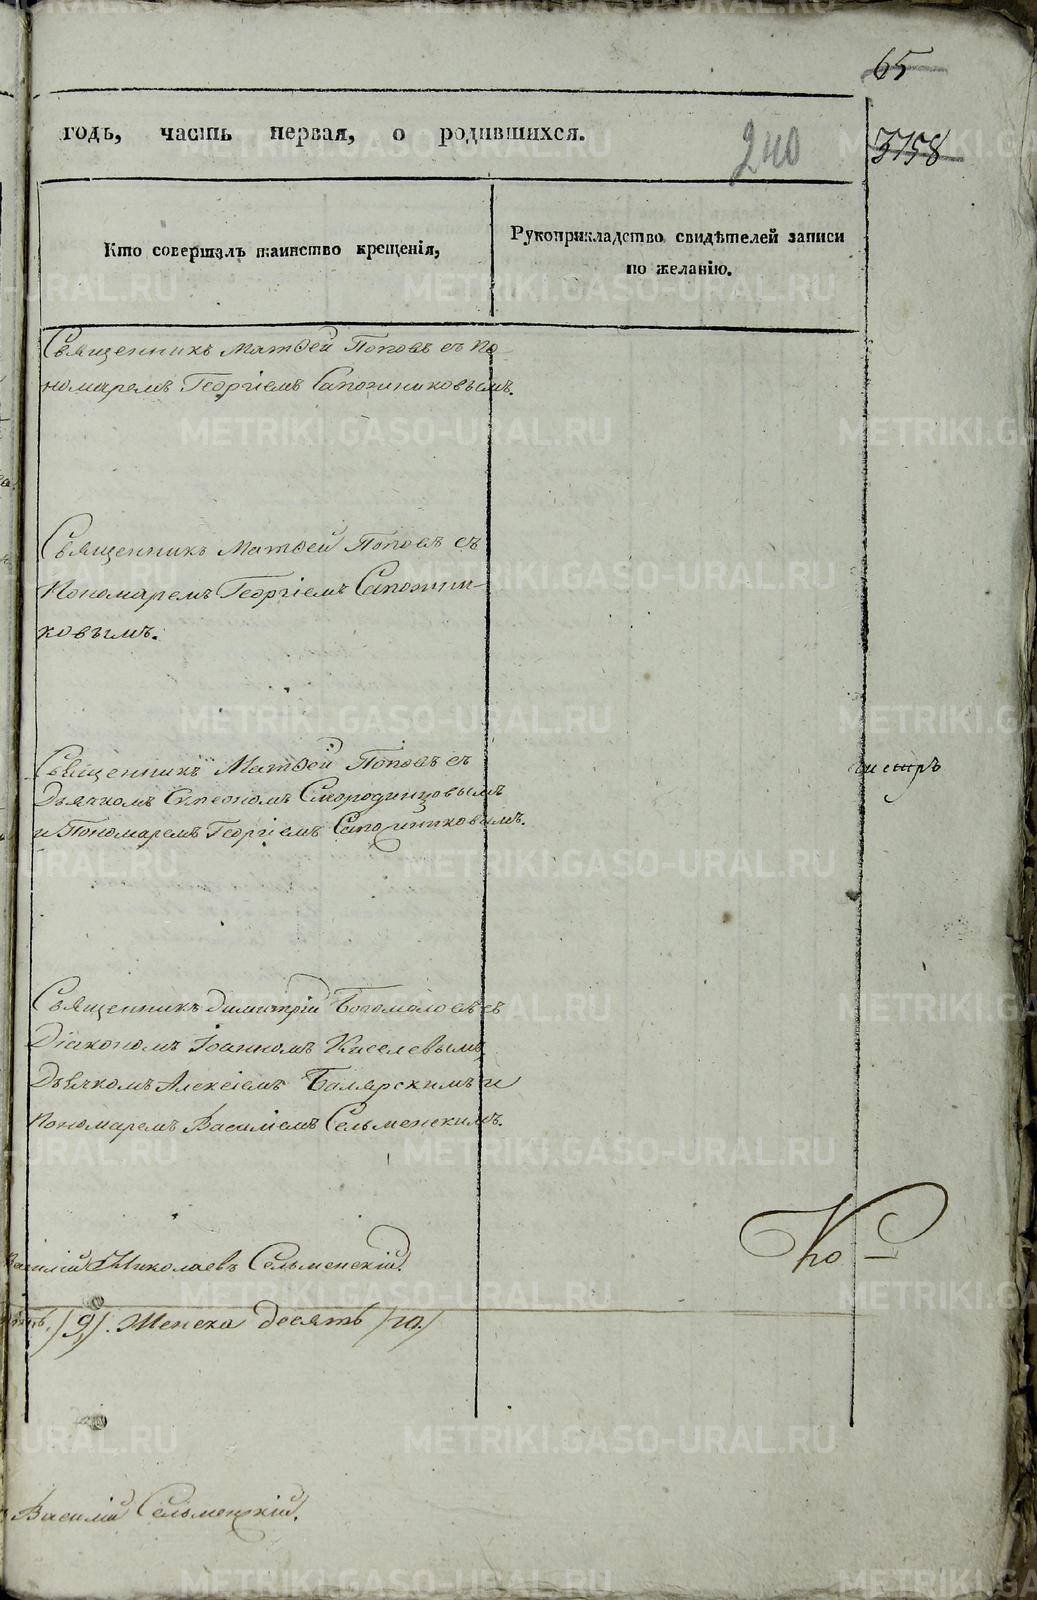 65
годъ, часть первая, о родившихся.
240
3158
Кто совершалъ таинство крещенія,
Рукоприкладство свидѣтелей записи
по желанію.
Священникъ Матѳей Поповъ съ По-
номаремъ Георгіемъ Сапожниковымъ.
Священникъ Матѳей Поповъ съ
Пономаремъ Георгіемъ Сапожни-
ковымъ.
Священникъ Матѳей Поповъ съ
Дьячкомъ Смородинцовымъ
и Пономаремъ Георгіемъ Сапожниковымъ.
Священникъ Димитрій Богомоловъ съ
Діакономъ Іоанномъ Киселевымъ
Дьячкомъ Алексіемъ и
Пономаремъ Василіемъ Сельменскимъ.
Василій Николаевъ Сельменскій.
/9/. Женска десять /10/
По
Василій Сельменскій.
METRIKI.GASO-URAL.RU